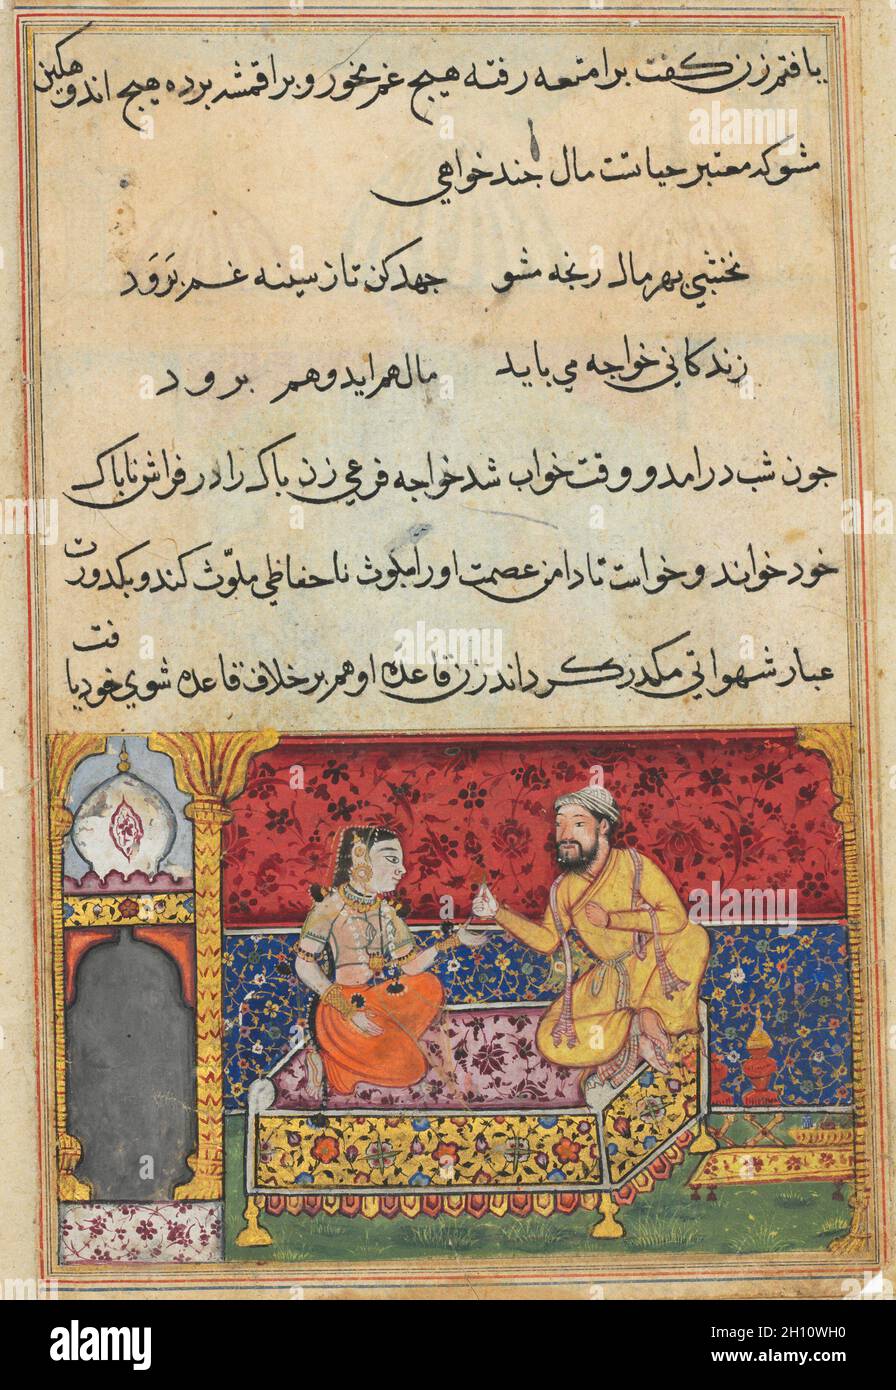 یافتم زن کفت بر امتعه رفته هیچ غم مخور و بر اقمشه برده هیچ اندوهکین
مشو که معتبر حیاتست مال جند خواهي
نخشبي بهر مال رنجه مشو جهد کن تا ز سینه غم برَوَد
زندکاني خواجه مي باید مال هم اید و هم برود
جون شب درامد و وقت خواب شد خواجه فرعي زن باک را در فراش ناباک
خود خواند و خواست تا دامن عصمت او را بلوث ناحفاظي ملوّث کند و بکدورت
عبار شهواتي مکدر کرداند زن قاعده او هم بر خلاف قاعده شوي خود یافت
alamy
2H10WH0
www.alamy.com